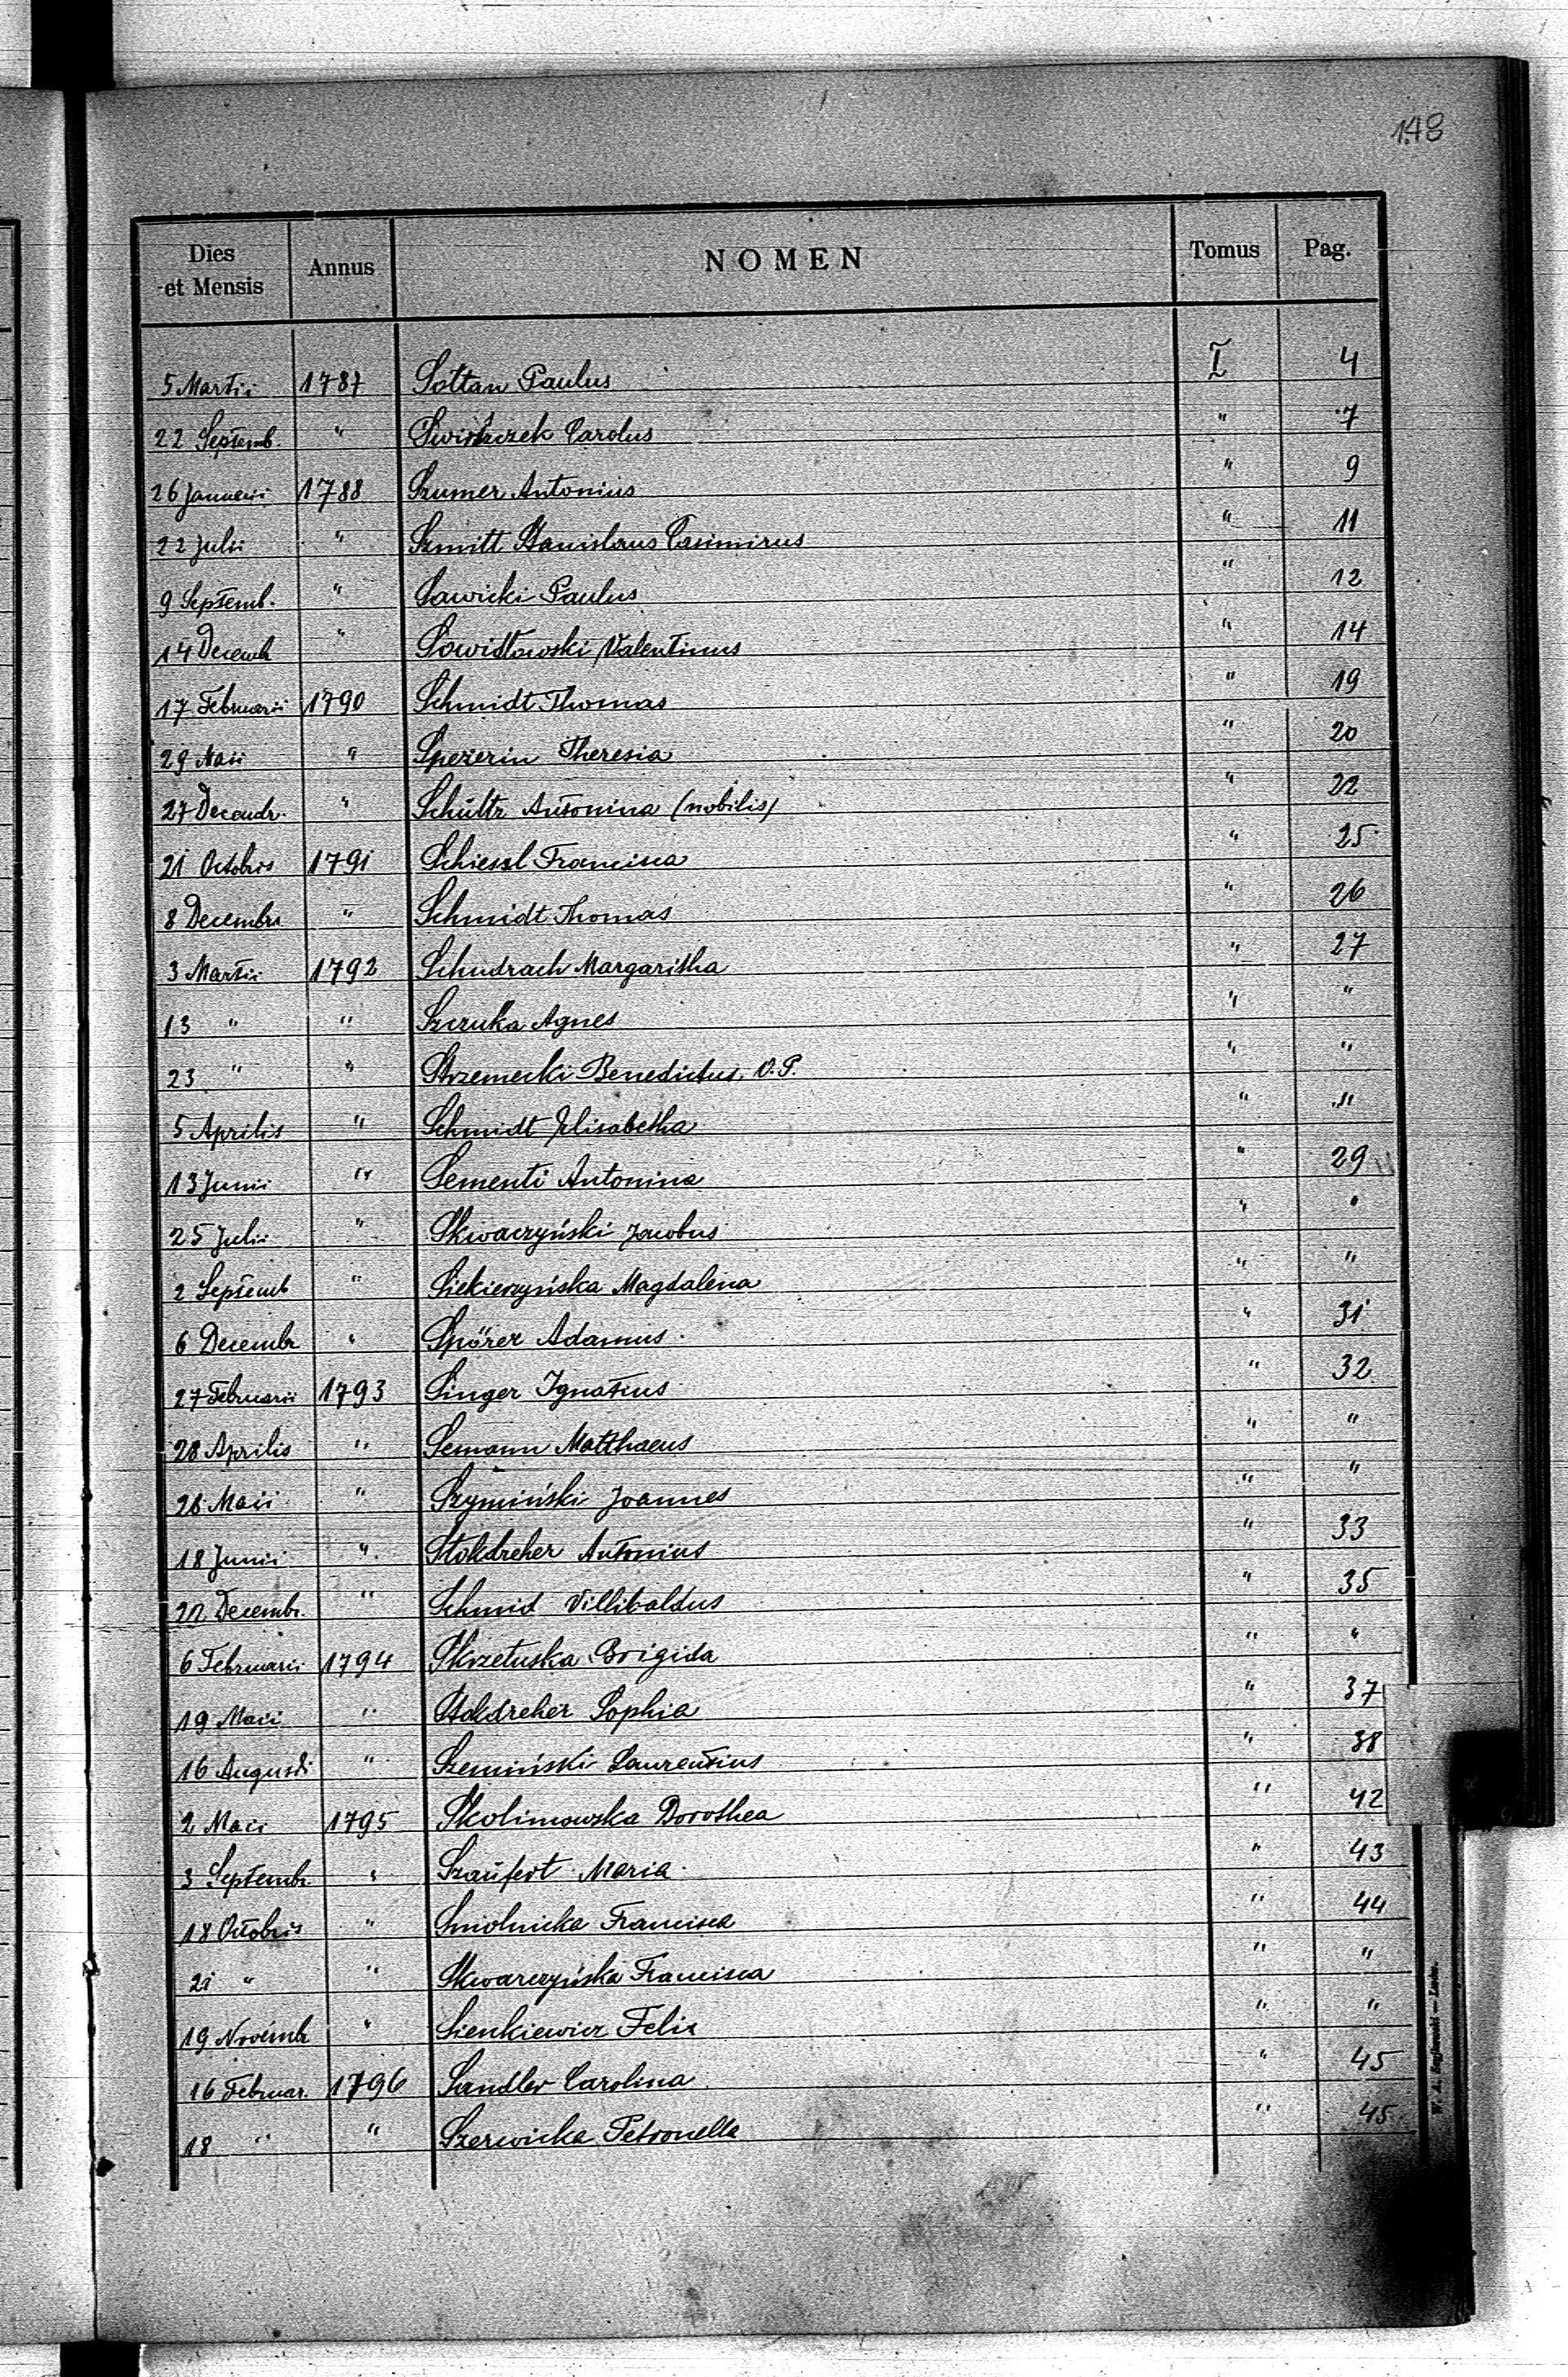 148
Dies et Mensis Annus NOMEN Tomus Pag.
5 Martii 1787 Sołtan Paulus I 4
22 Septemb. " Carolus " 7
26 Januarii 1788 Szumer Antonius " 9
22 Julii " Szmitt Stanislaus Casimirus " 11
9 Septemb. " Sawicki Paulus " 12
14 Decemb " Valentinus " 14
17 Februarii 1790 Schmidt Thomas " 19
29 Maii " Theresia " 20
27 Decembr. " Schültz Antonina (nobilis) " 22
21 Octobris 1791 Schiessl Francisca " 25
8 Decembr. " Schmidt Thomas " 26
3 Martii 1792 Schudrach Margaritha " 27
13 " " Szczuka Agnes " "
23 " " Strzemecki Benedictus, O.P. " "
5 Aprilis " Schmidt Elisabetha " "
13 Junii " Sementi Antonina " 29
25 Julii " Skwaczyński Jacobus " "
2 Septemb " Siekierzyńska Magdalena " "
6 Decembr " Spörer Adamus " 31
27 Februarii 1793 Singer Ignatius " 32
28 Aprilis " Semann Matthaeus " "
28 Maii " Szymiński Joannes " "
18 Junii " Stokdreher Antonius " 33
22 Decembr. " Schmid Villibaldus " 35
6 Februarii 1794 Skrzetuska Brigida " "
19 Maii " Stokdreher Sophia " 37
16 Augusti " Szemiński Laurentius " 38
2 Maii 1795 Skolimowska Dorothea " 42
3 Septembr. " Szaufert Maria " 43
18 Octobris " Smolnicka Francisca " 44
21 " " Skwarczyńska Francisca " "
19 Novembr " Sienkiewicz Felix " "
16 Februar. 1796 Sandler Carolina " 45
18 " " Szerwicka Petronella " 45